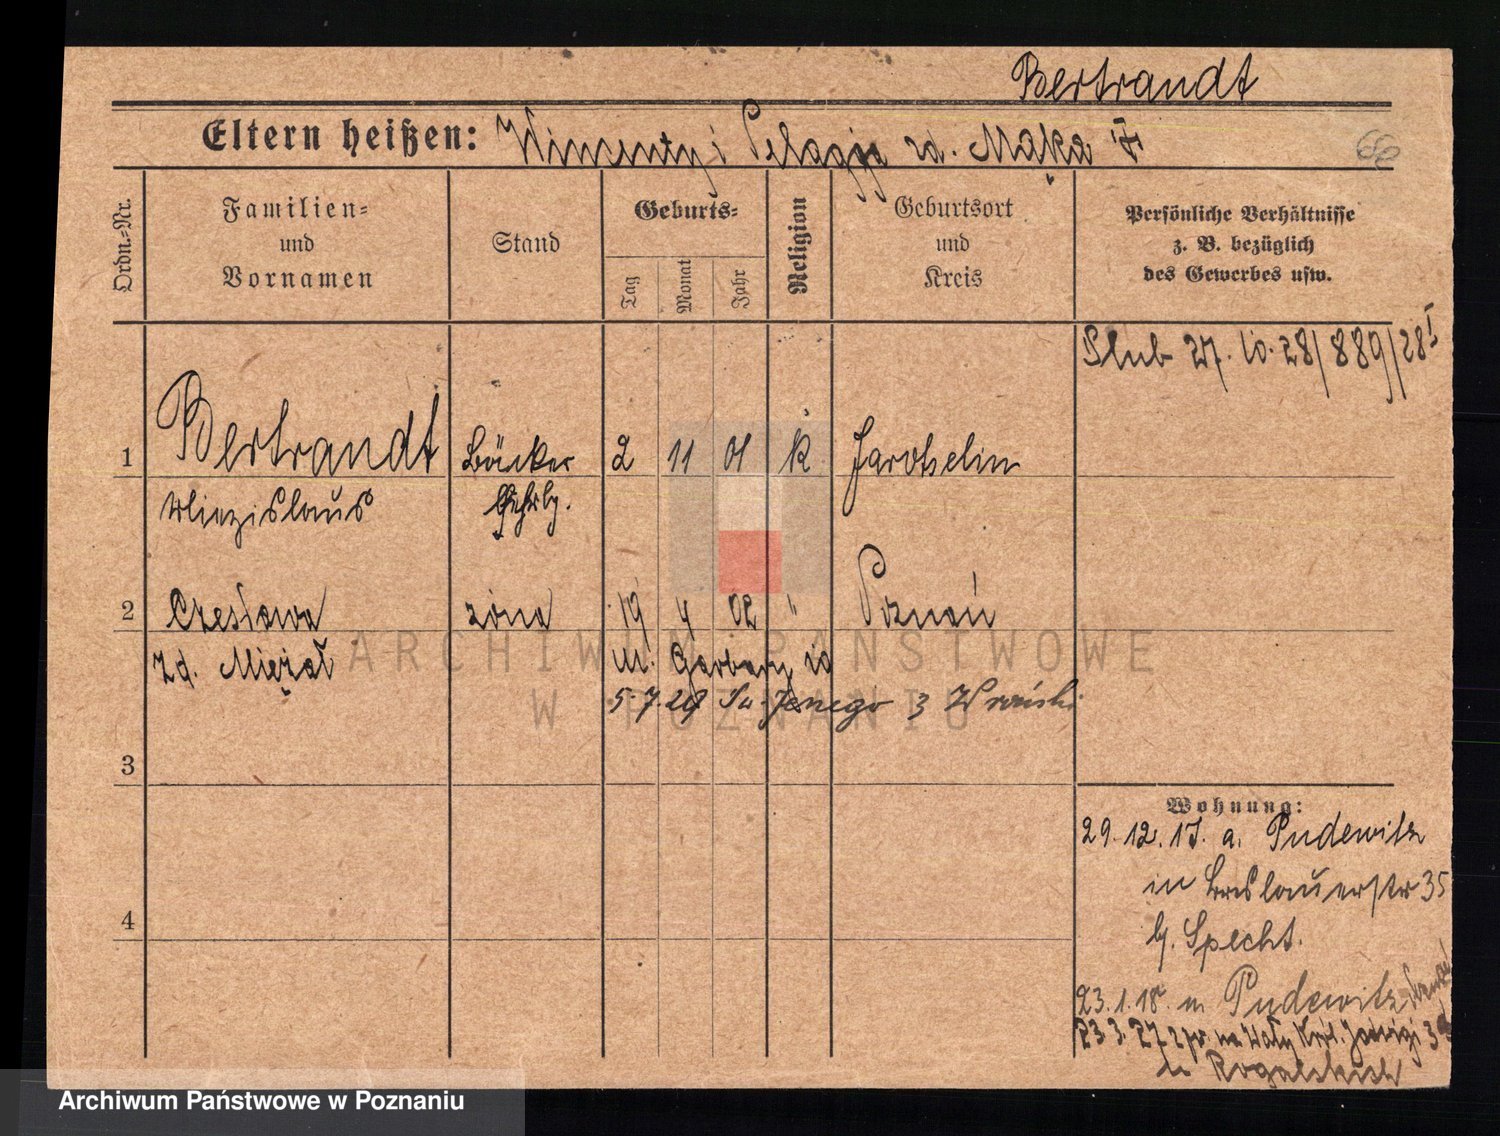 Bertrandt
Eltern heißen: Wincenty i Pelagja zd. Mąka
66
Ordn.=Nr.
Familien=
und
Vornamen
Stand
Geburts=
Tag
Monat
Jahr
Religion
Geburtsort
und
Kreis
Persönliche Verhältnisse
z. B. bezüglich
des Gewerbes usw.
Slub 27. 10. 28/889/28 I
1 Bertrandt Bäcker 2 11 01 k Jarotschin
Miezislaus Lehrlg.
2 Czesława żona 19 4 02 " Poznań
zd. Miężał ul. Garbary 10
5.7.29 3 Wroński
3
Wohnung:
29. 12. 17. a. Pudewitz
in Breslauerstr 35
b. Specht.
4
23. 1. 18. n Pudewitz
23. 3. 27 na Wały Król. Jadwigi
u Rogalskich
ARCHIWUM PAŃSTWOWE
W POZNANIU
Archiwum Państwowe w Poznaniu